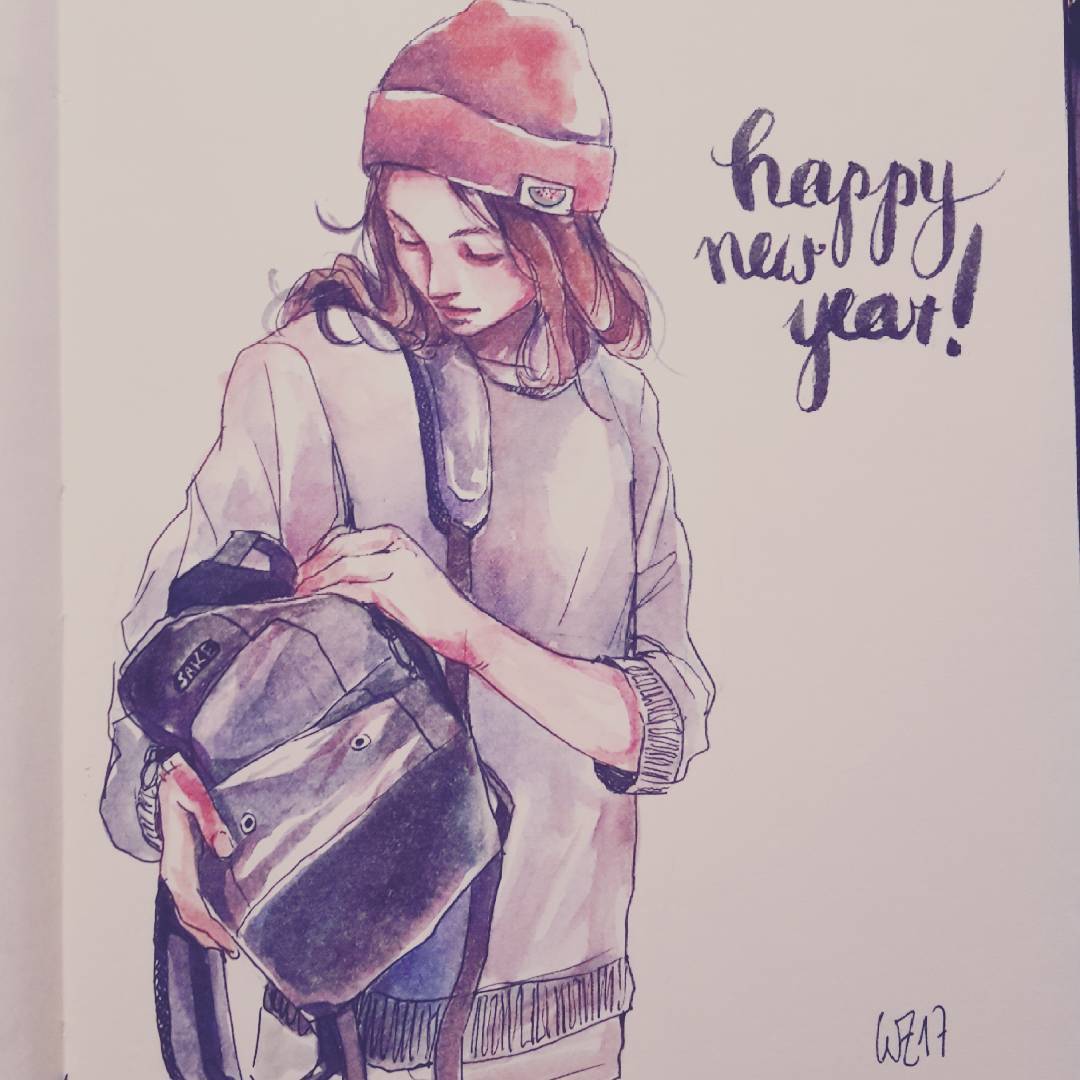 happy
new
year!
SAKE
WZ17